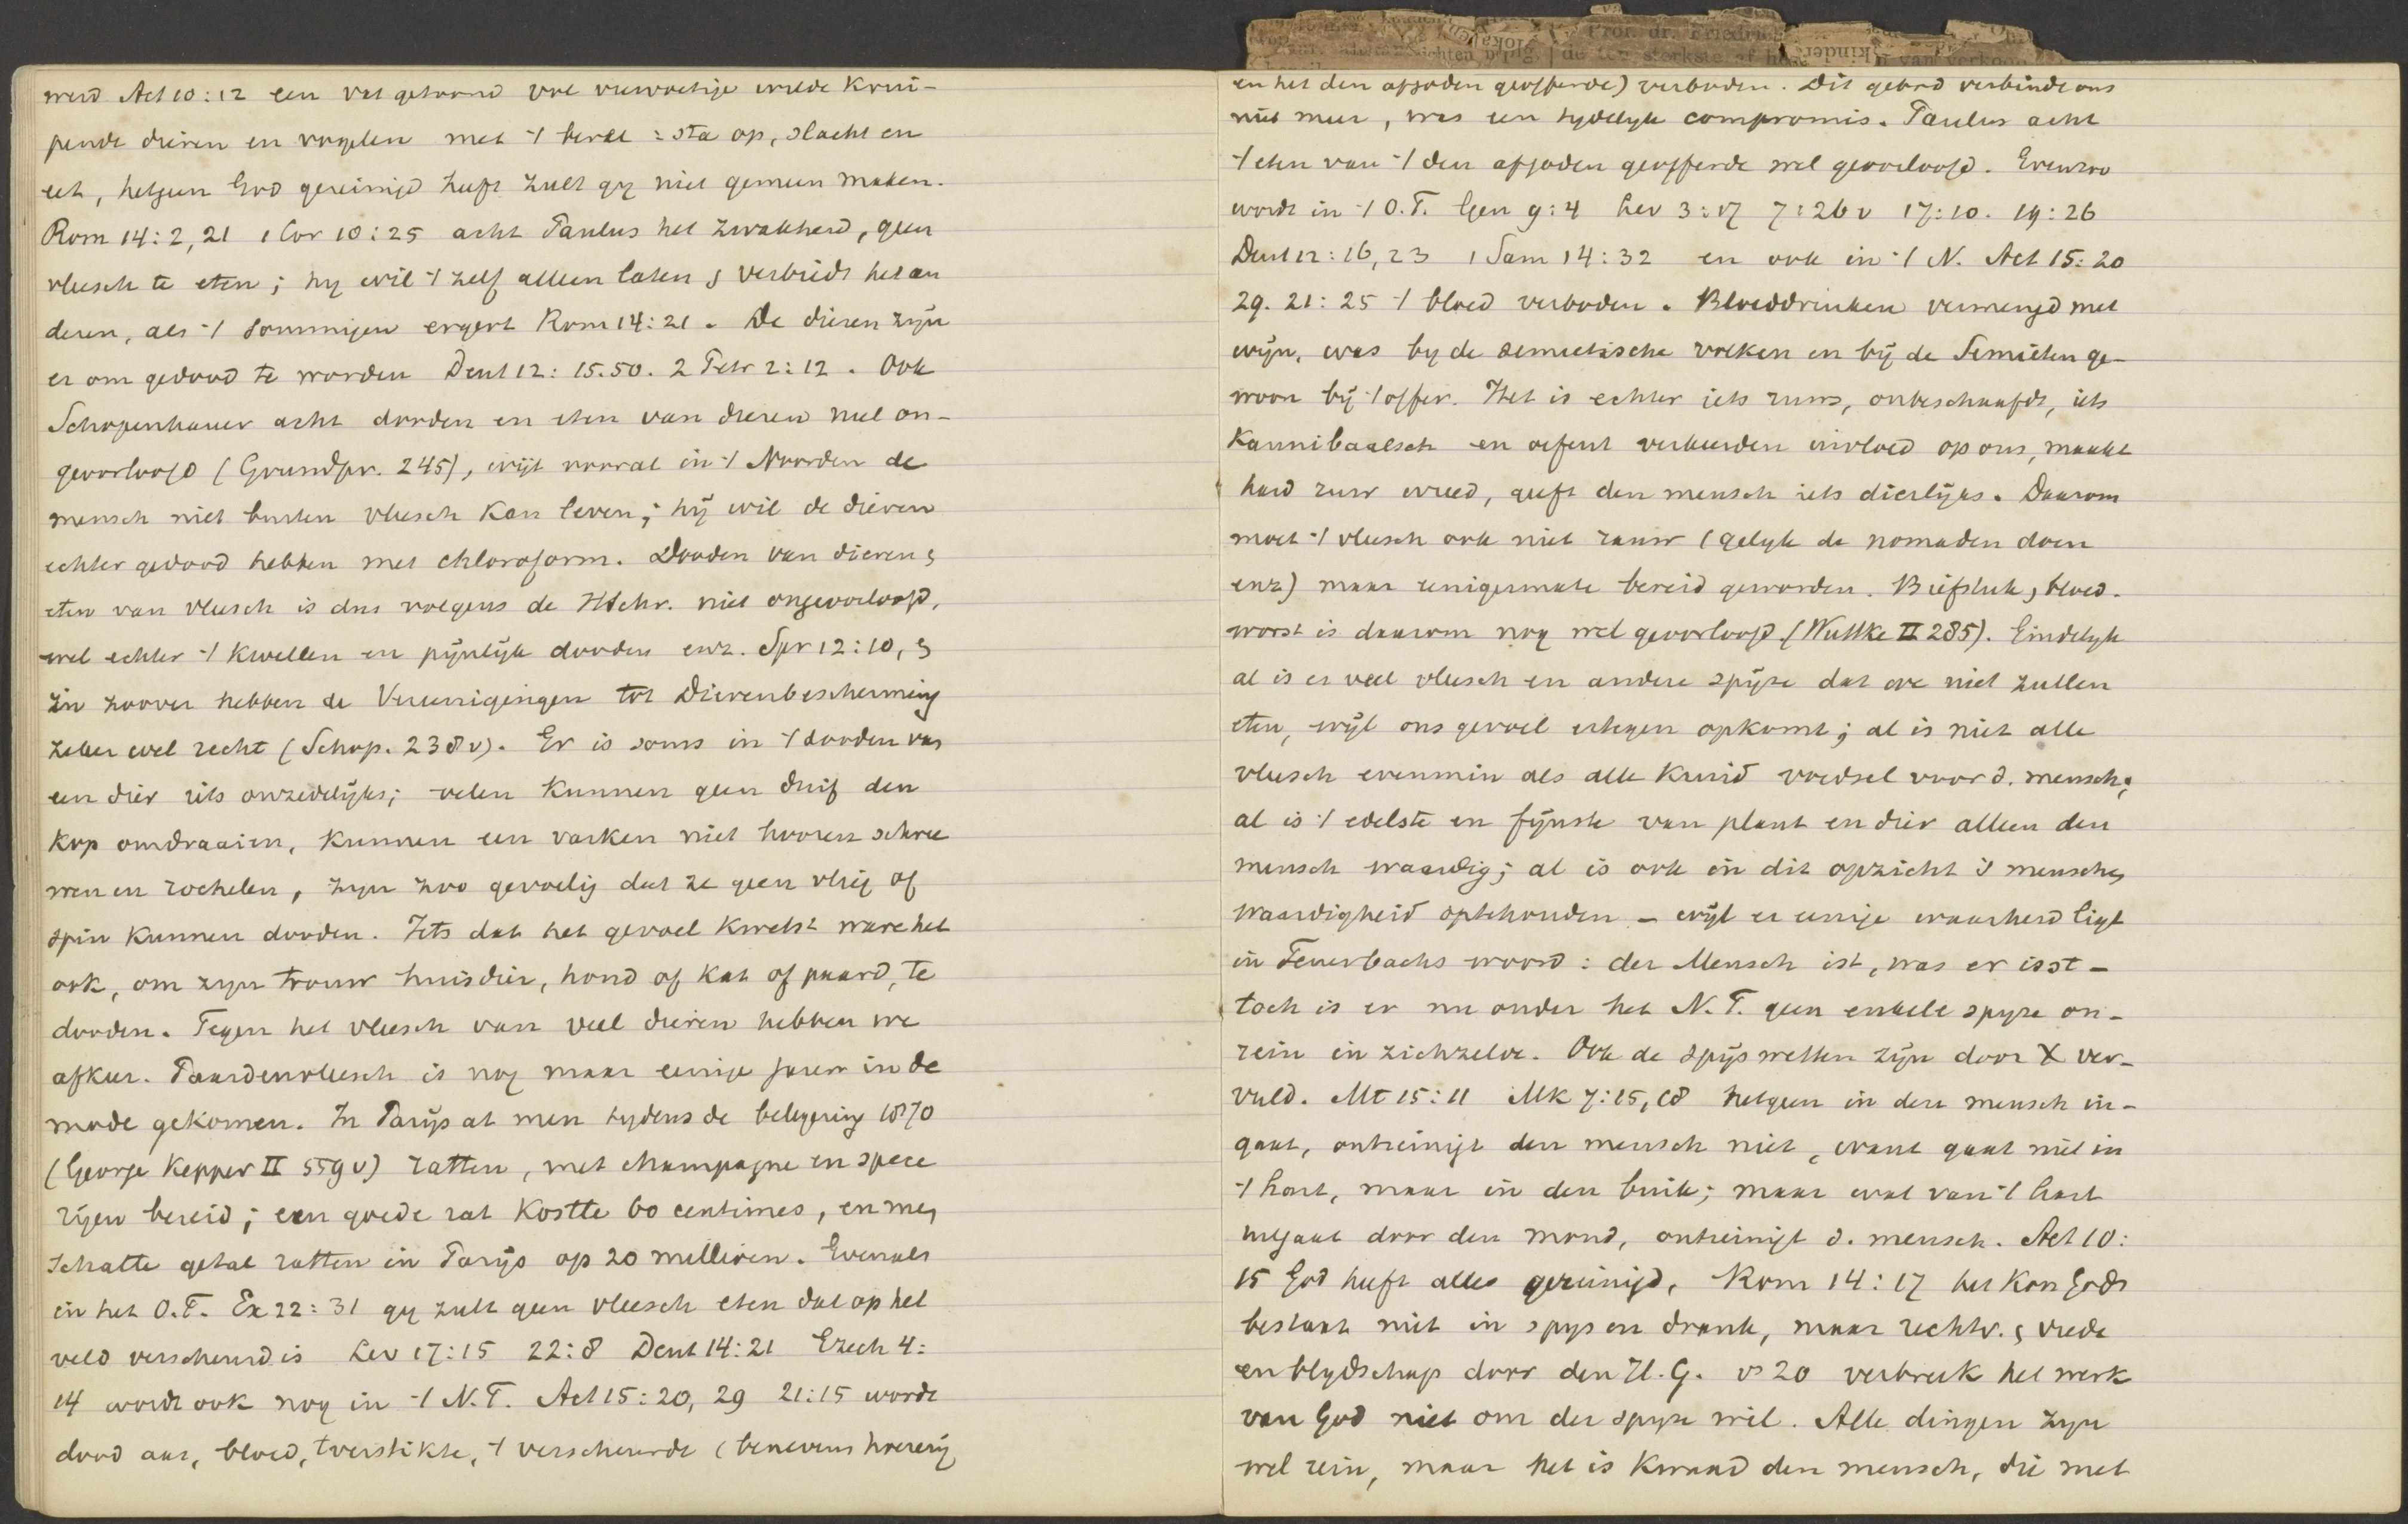 werd Act 10:12 een vat getoond vol viervoetige wilde krui-
pende dieren en vogelen met 't bevel: sta op, slacht en
eet, hetgeen God gereinigd heeft zult gy niet gemeen maken.
Rom 14:2,21 1 Cor 10:25 acht Paulus het zwakheid, geen
vleesch te eten; hy wil 't zelf alleen laten & verbiedt het an
deren, als 't sommigen ergert Rom 14:21. De dieren zyn
er om gedood te worden Deut 12:15.50. 2 Petr 2:12. Ook
Schopenhauer acht dooden en eten van dieren niet on-
geoorloofd (Grundpr. 245), wijl vooral in 't Noorden de
mensch niet buiten vleesch kan leven; hij wil de dieren
echter gedood hebben met chloroform. Dooden van dieren &
eten van vleesch is dus volgens de H Schr. niet ongeoorloofd,
wel echter 't kwellen en pijnlijk dooden enz. Spr 12:10, &
in zoover hebben de Vereenigingen tot Dierenbescherming
zeker wel recht (Schop. 238 v). Er is soms in 't dooden van
een dier iets onzedelijks; velen kunnen geen duif den
kop omdraaien, kunnen een varken niet hooren schree
wen en rochelen, zyn zoo gevoelig dat ze geen vlieg of
spin kunnen dooden. Iets dat het gevoel kwetst ware het
ook, om zyn trouw huisdier, hond of kat of paard, te
dooden. Tegen het vleesch van veel dieren hebben we
afkeer. Paardenvleesch is nog maar eenige jaren in de
mode gekomen. In Parijs at men tydens de belegering 1870
(George Kepper II 559 v) ratten, met champagne en spece
rijen bereid; een goede rat kostte 60 centimes, en men
schatte getal ratten in Parijs op 20 millioen. Evenals
in het O.T. Ex 22:31 gy zult geen vleesch eten dat op het
veld verscheurd is Lev 17:15 22:8 Deut 14:21 Ezech 4:
14 wordt ook nog in 't N.T. Act 15:20, 29 21:15 wordt
dood aas, bloed, 't verstikte, 't verscheurde (benevens hoererij
en het den afgoden geofferde) verboden. Dit gebod verbindt ons
niet meer, was een tydelyk compromis. Paulus acht
't eten van 't den afgoden geofferde wel geoorloofd. Evenzoo
wordt in 't O.T. Gen 9:4 Lev 3:17 7:26 v 17:10. 19:26
Deut 12:16,23 1 Sam 14:32 en ook in 't N. Act 15:20
29. 21:25 't bloed verboden. Bloeddrinken vermengd met
wijn, was by de semietische volken en bij de Semieten ge-
woon bij 't offer. Het is echter iets ruws, onbeschaafds, iets
kannibaalsch en oefent verkeerden invloed op ons, maakt
hard ruw wreed, geeft den mensch iets dierlijks. Daarom
moet 't vleesch ook niet rauw (gelyk de nomaden doen
enz) maar eenigermate bereid geworden. Biefstuk, bloed-
worst is daarom nog wel geoorloofd (Wuttke II 285). Eindelyk
al is er veel vleesch en andere spijze dat we niet zullen
eten, wijl ons gevoel ertegen opkomt; al is niet alle
vleesch evenmin als alle kruid voedsel voor d. mensch;
al is 't edelste en fijnste van plant en dier alleen den
mensch waardig; al is ook in dit opzicht 's menschen
waardigheid optehouden - wijl er eenige waarheid ligt
in Feuerbachs woord: der Mensch ist, was er isst -
toch is er nu onder het N.T. geen enkele spyze on-
rein in zichzelve. Ook de spijswetten zijn door X ver-
vuld. Mt 15:11 Mk 7:15,18 hetgeen in den mensch in-
gaat, ontreinigt den mensch niet, want gaat niet in
't hart, maar in den buik; maar wat van 't hart
uitgaat door den mond, ontreinigt d. mensch. Act 10:
15 God heeft alles gereinigd, Rom 14:17 het Kon Gods
bestaat niet in spys en drank, maar rechtv. & vrede
en blydschap door den H.G. vs 20 verbreek het werk
van God niet om der spyze wil. Alle dingen zyn
wel rein, maar het is kwaad den mensch, die met